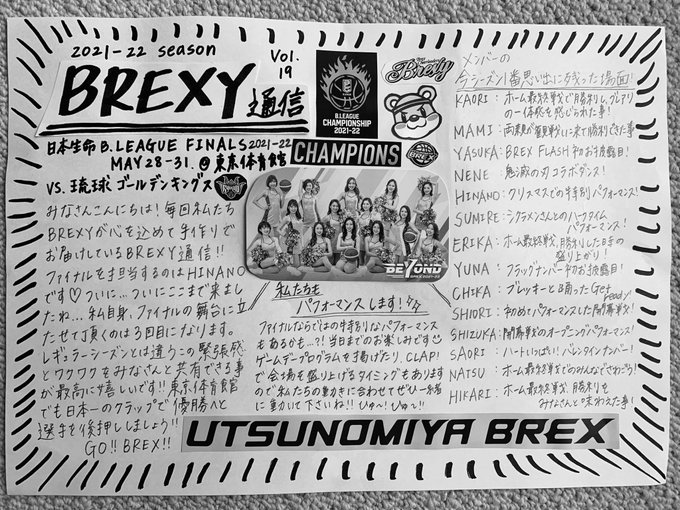 2021-22 season
BREXY通信
Vol.
19
日本生命 B.LEAGUE FINALS 2021-22
MAY 28-31. @東京体育館
VS. 琉球ゴールデンキングス
みなさんこんにちは!毎回私たち
BREXYが心を込めて手作りで
お届けしているBREXY通信!!
ファイナルを担当するのはHINANO
です♡ついに…ついにここまで来まし
たね…私自身、ファイナルの舞台に立
たせて頂くのは3回目になります。
レギュラーシーズンとは違うこの緊張感
とワクワクをみなさんと共有できる事
が最高に嬉しいです!!東京体育館
でも日本一のクラップで優勝へと
選手を後押ししましょう!!
GO!! BREX!!
B.LEAGUE
CHAMPIONSHIP
2021-22
Brexy
CHAMPIONS
BREX
BEYOND
BREX 2021-22
私たちも
パフォーマンスします!
ファイナルならではの特別なパフォーマンス
もあるかも…?!当日までのお楽しみです
ゲームデープログラムを掲げたり、CLAP!
で会場を盛り上げるタイミングもあります
ので私たちの動きに合わせてぜひ一緒
に動いて下さいね!!ひゅ〜!ひゅ〜!!
メンバーの
今シーズン1番思い出に残った場面!
KAORI:ホーム最終戦で勝利し、ブレアリ
の一体感を感じられた事!
MAMI:両親が観戦しに来て勝利できた事
YASUKA:BREX FLASH初お披露目!
NENE:鬼滅の刃コラボダンス!
HINANO:クリスマスでの特別パフォーマンス!
SUMIRE:シクラメンさんとのハーフタイム
パフォーマンス!
ERIKA:ホーム最終戦、勝利した時の
盛り上がり!
YUNA:フラッグナンバー初お披露目!
CHIKA:ブレッキーと踊ったGet
Ready!
SHIORI:初めてパフォーマンスした開幕戦!
SHIZUKA:開幕戦のオープニングパフォーマンス!
SAORI:ハートいっぱい!バレンタインナンバー!
NATSU:ホーム最終戦でのみんなでさわごう!
HIKARI:ホーム最終戦、勝利を
みなさんと味わえた事!
UTSUNOMIYA BREX